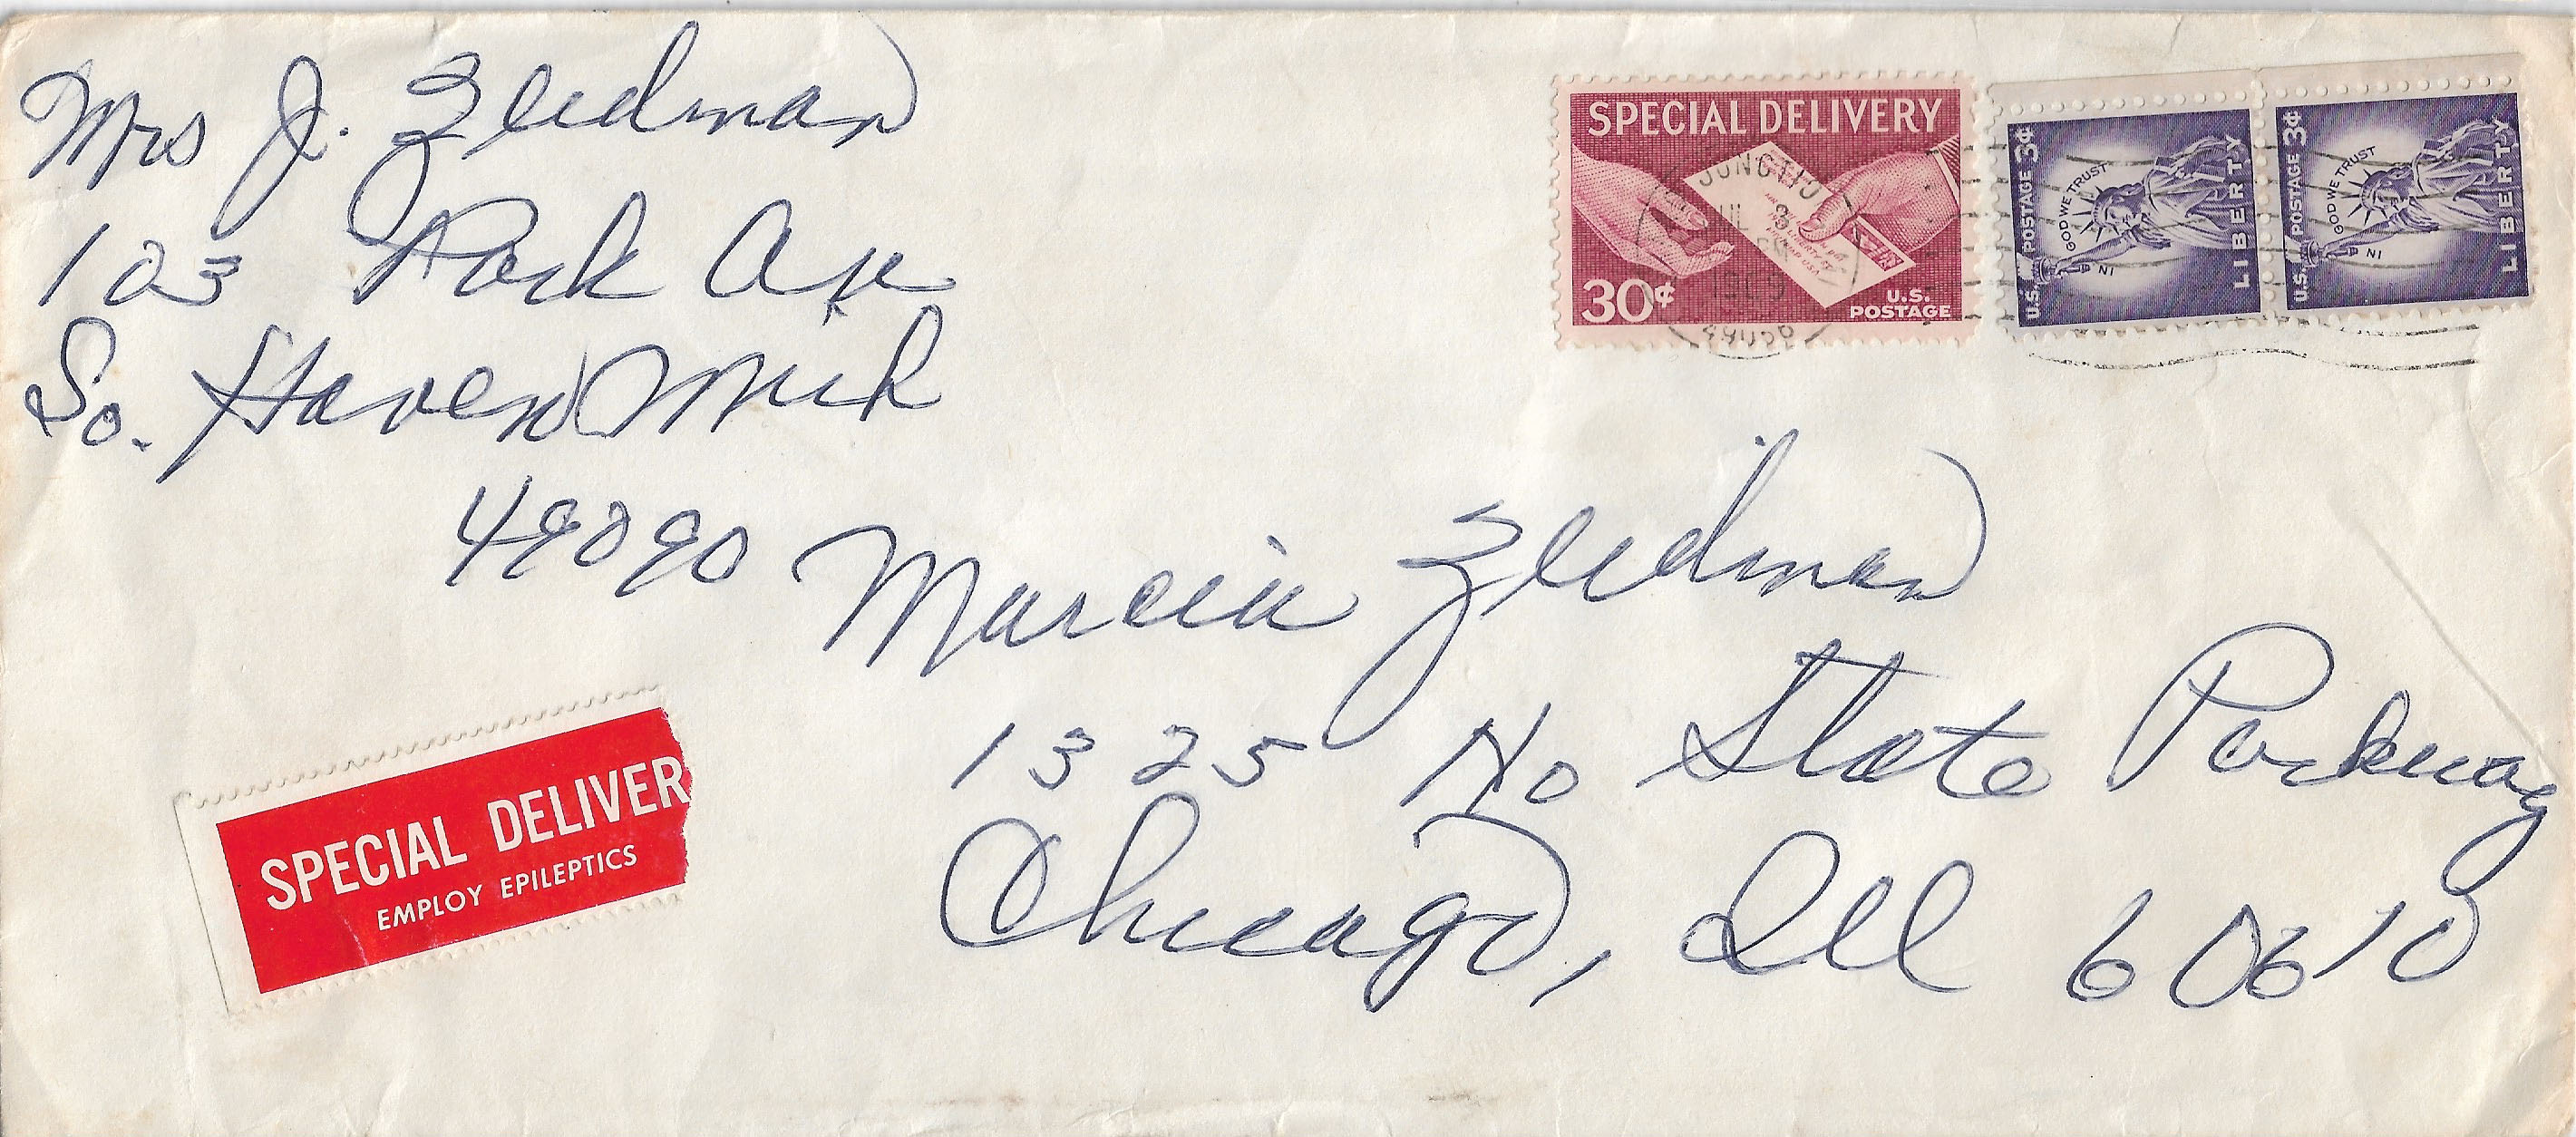 Mrs J. Zeidman
103 Park Ave
So. Haven Mich
49090
SPECIAL DELIVERY
30¢
U.S.
POSTAGE
JUL 3
49056
U.S. POSTAGE 3¢
IN GOD WE TRUST
LIBERTY
U.S. POSTAGE 3¢
IN GOD WE TRUST
LIBERTY
Marcia Zeidman
1325 No State Parkway
Chicago, Ill 60610
SPECIAL DELIVER
EMPLOY EPILEPTICS